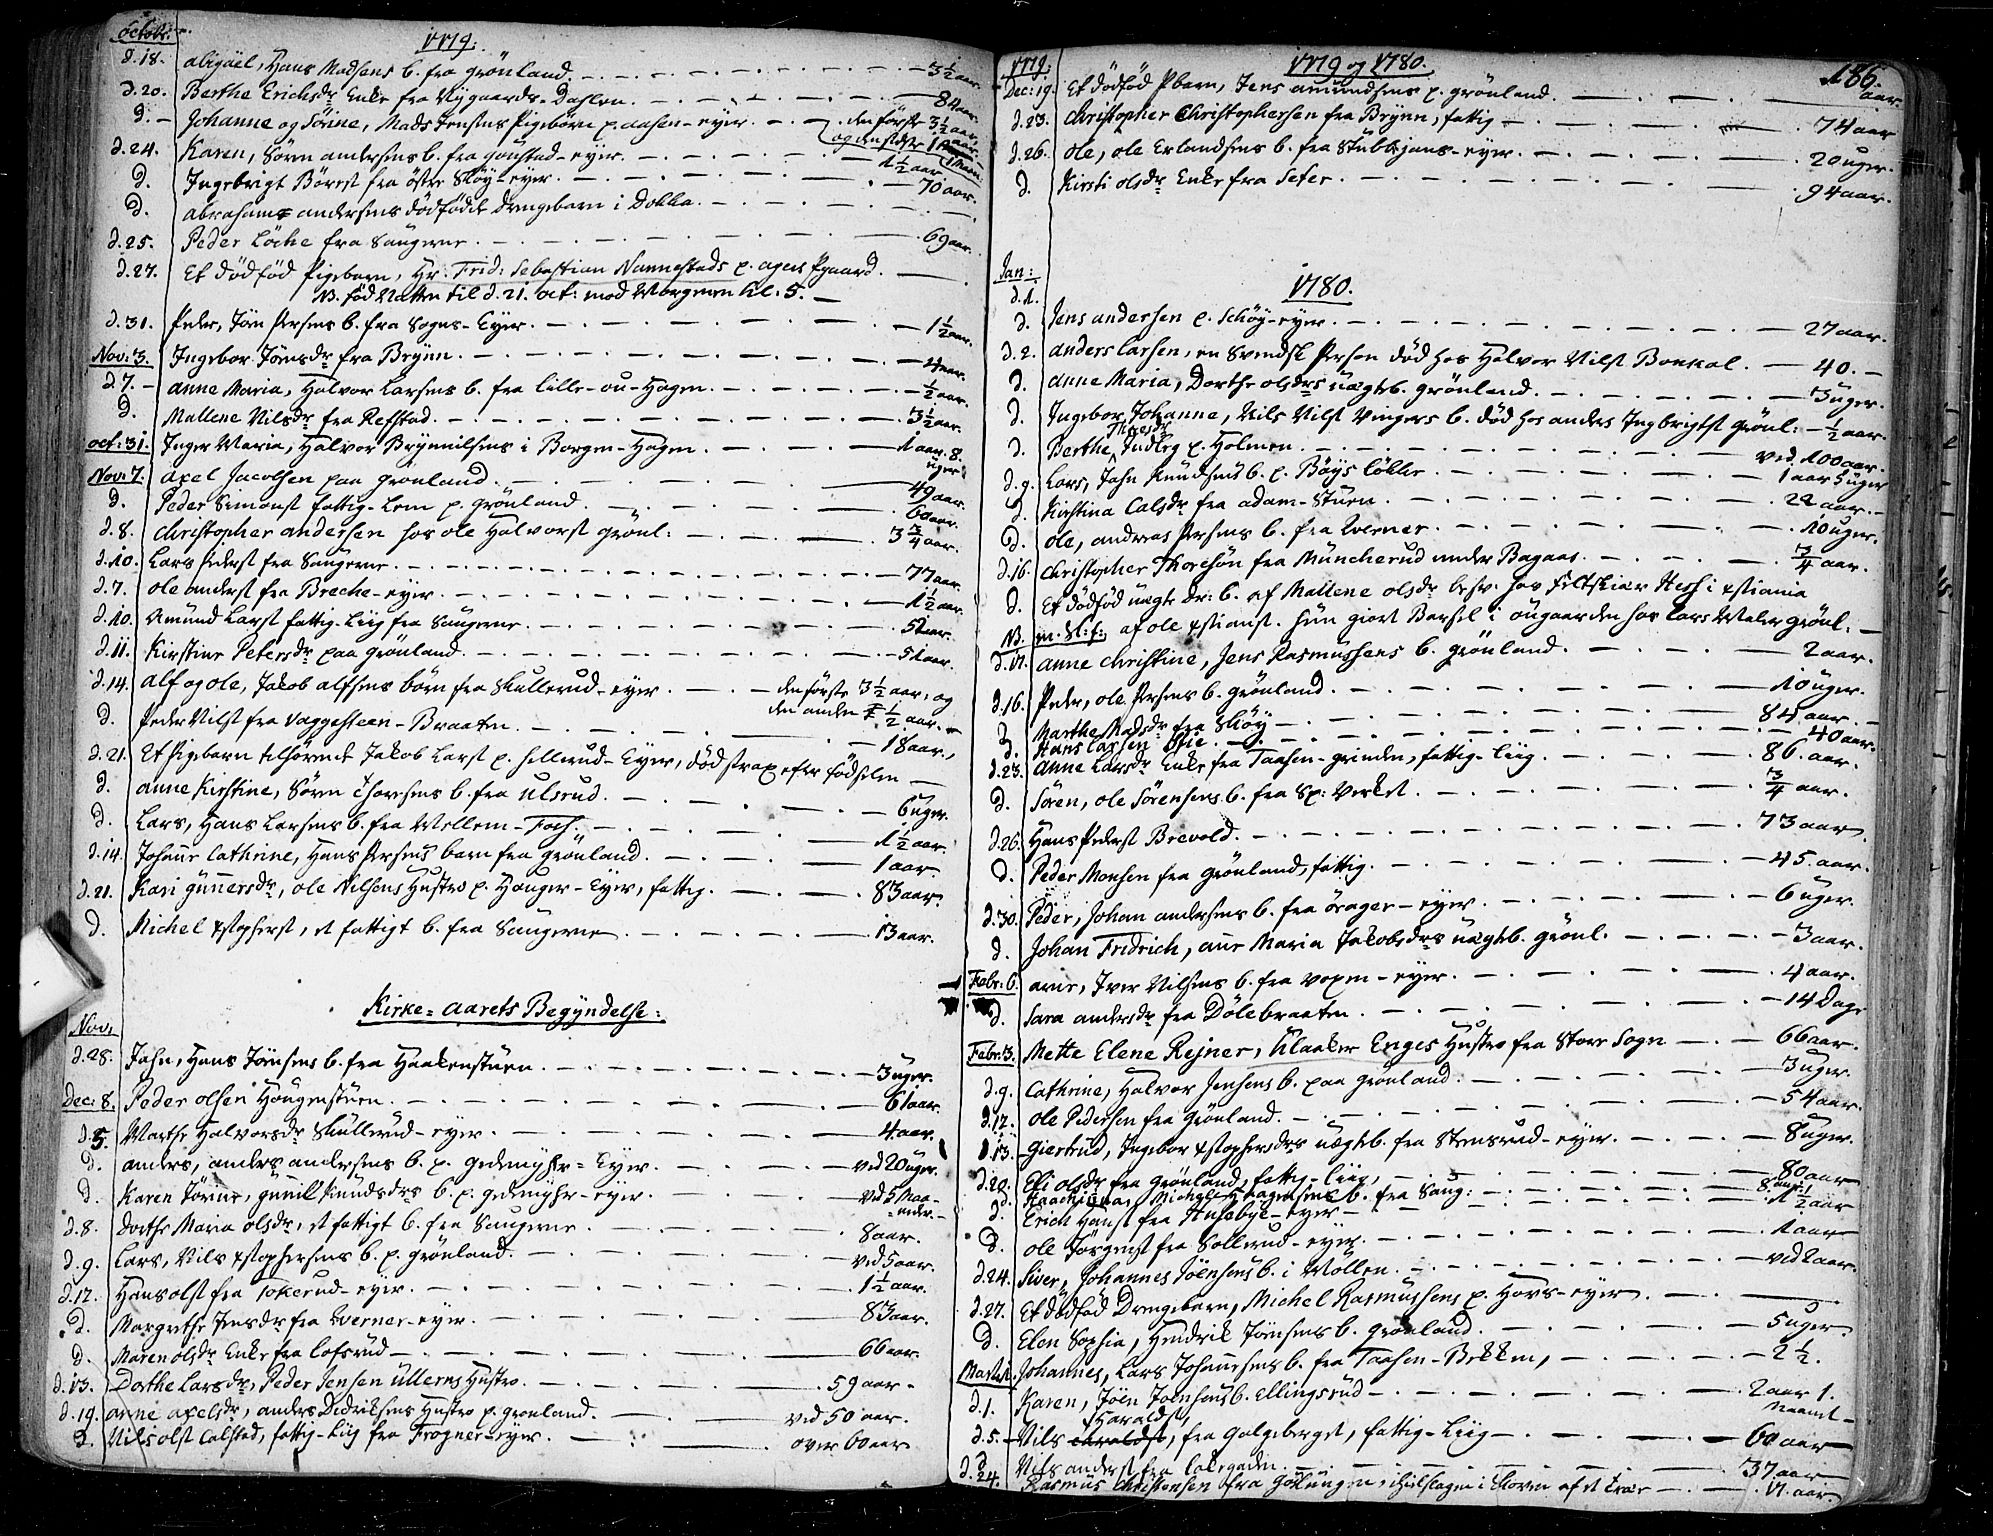 Octobr:
1779.
d. 18. Abigael, Hans Madsens b. fra Grönland. 3½ aar.
d. 20. Berthe Erichsdr Enke fra Nygaards-Dahlen. 84 aar.
d. - Johanne og Sörine, Mads Jensens Pigebörn p. Aasen-eyer. den förste 3½ aar
og den sidste 1
d. 24. Karen, Sörn Andersens b. fra Goustad-eyer. 1½ aar
d. Ingebrigt Börest fra östre Sköy-eyer. 70 aar.
d. Abrahams Andersens dödfödde Drengebarn i Dobla.
d. 25. Peder Löche fra Saugerne. 69 aar.
d. 27. Et dödföd Pigebarn, Hr. Frid: Sebastian Nannestads p. Agers Pgaard.
NB. föd Natten til d. 21. Oct: mod Morgenen kl: 5.
d. 31. Peder, Jörn Persens b. fra Sogns-Eyer. 1½ aar.
Nov: 3. Ingebor Jörnsdr fra Brynn. 4 aar.
d. 7. - Anne Maria, Halvor Larsens b. fra Lille-ou-Hagen. ½ aar.
d. Mallene Nilsdr fra Refstad. 3½ aar.
Oct: 31. Inger Maria, Halvor Brynnilsens i Borgen-Hagen. 1 aar. 8.
uger.
Nov: 7. Axel Jacobsen paa Grönland. 49 aar.
d. Peder Simonst fattig-Lem p. Grönland. 60 aar.
d. 8. Christopher Andersen hos Ole Halvorst Grönl: 3¾ aar.
d. 10. Lars Pederst fra Saugerne. 77 aar.
d. 7. Ole Anderst fra Breche-eyer. 1½ aar.
d. 10. Amund Larst fattig-Liig fra Saugerne. 52 aar.
d. 11. Kirstine Petersdr paa Grönland. 51 aar.
d. 14. Alf og Ole, Jakob Alfsens börn fra Skullerud-eyer. den förste 3½ aar, og
den anden ½ aar.
d. Peder Nilst fra Vaggesteen-Braaten. 18 aar.
d. 21. Et Pigebarn tilhörende Jakob Larst p. Hellerud-Eyer, död strax efter födselen
d. Anne Kirstine, Sörn Thoresens b. fra Ulsrud. 6 uger.
d. Lars, Hans Larsens b. fra Mellem-Foss. 1½ aar.
d. 14. Johanne Cathrine, Hans Persens barn fra Grönland. 1 aar
d. 21. Kari Gunnersdr, Ole Nilsens Hustro p. Houger-Eyer, fattig. 83 aar.
d. Michel Xstopherst, et fattigt b. fra Saugerne. 13 aar.
Kirke=Aarets Begyndelse:
Nov:
d. 28. John, Hans Jörnsens b. fra Haakenstuen. 3 uger.
Dec: 8. Peder Olsen Hougenstuen. 61 aar.
d. 5. Marthe Halvorsdr Skullerud-eyer. 4 aar.
d. Anders, Anders Andersens b. p. Gedemyhr=Eyer. ved 20 uger.
d. Karen Jörine, Gunnil Knudsdrs b. p. Gedemyhr-eyer. ved 5 Maa-
neder.
d. 8. Dorthe Maria Olsdr, et fattigt b. fra Saugerne 8 aar.
d. 9. Lars, Nils Xstophersens b. p. Grönland. ved 5 aar.
d. 12. Hans Olst fra Tokerud-eyer. 1½ aar.
d. Margrethe Jensdr fra Qverner-eyer. 83 aar.
d. Maren Olsdr Enke fra Lofsrud 66 aar.
d. 13. Dorthe Larsdr, Peder Jensen Ullerns Hustro. 59 aar.
d. 19. Anne Axelsdr, Anders Didriksens Hustro p. Grönland. ved 50 aar.
d. Nils Olst Calstad, fattig-Liig fra Frogner-eyer. over 60 aar.
1779.
1779 og 1780.
186.
Dec: 19. Et dödföd Pbarn, Jens Amundsens p. Grönland. aar.
d. 23. Christopher Christophersen fra Brynn, fattig 74 aar
d. 26. Ole, Ole Erlandsens b. fra Stubbjans-eyer. 20 uger.
d. Kirsti Olsdr Enke fra Seter. 94 aar.
Jan:
1780.
d. 1.
d. Jens Andersen p. Schöy-eyer. 27 aar.
d. 2. Anders Larsen, en Svendsk Person död hos Halvor Nilst Bonkal. 40.
d. Anne Maria, Dorthe Olsdrs uægteb. Grönland. 3 uger.
d. Ingebor Johanne, Nils Nilst Vingers b. död hos Anders Ingbrigtst Grönl: ½ aar.
Thoresdr
d. Berthe Indleg p. Holmen. ved 100 aar.
d. 9. Lars, John Knudsens b. p. Böys Lökke. 1 aar 5 uger
d. Kirstina Calsdr fra Adam-Stuen. 22 aar.
d. Ole, Andreas Persens b. fra Qverner. 10 uger.
d. 16. Christopher Thoresön fra Müncherud under Bagaas. ¾ aar.
d. Et dödföd uægte dr: b. af Mallene Olsdr besv. hos Feltskiær Hess i Xstiania
NB. m. sl: f: af Ole Xstianst. hun giort Barsel i Ougaarden hos Lars Maler Grönl.
d. 17. Anne Christine, Jens Rasmussens b. Grönland. 2 aar.
d. 16. Peder, Ole Persens b. Grönland. 10 uger.
d. Marthe Madsdr fra Sköy 84 aar.
d. Hans Larsen 40 aar.
d. 23. Anne Larsdr Enke fra Taasen-grinden, fattig-Liig. 86 aar.
d. Sören, Ole Sörensens b. fra Sp: Verket. ¾ aar.
d. 26. Hans Pederst Brevold. 73 aar
d. Peder Monsen fra Grönland, fattig. 45 aar.
d. 30. Peder, Johan Andersens b. fra Örager-eyer. 6 uger.
d. Johan Fridrich, Ane Maria Jakobsdrs uægteb. Grönl. 3 aar.
Febr: 6. Anne, Iver Nilsens b. fra Voxen-eyer. 4 aar.
d. Sara Andersdr fra Dölebraaten. 14 Dage
Febr: 3. Mette Elene Rejner, Klokker Enges Hustro fra Store Sogn 66 aar.
d. 9. Cathrine, Halvor Jensens b. paa Grönland. 3 uger.
d. 12. Ole Pedersen fra Grönland. 54 aar.
d. 13. Giertrud, Ingebor Xstophersdrs uægteb. fra Stensrud-eyer. 8 uger.
d. 20. Eli Olsdr fra Grönland, fattig-Liig, 80 aar
d. Michel b. fra Saug: 8
d. Erich Hanst fra Husebye-eyer 1½ aar
d. Ole Jörgenst fra Sollerud-eyer. 1 aar
d. 24. Siver, Johannes Joensens b. i Mollen. ved 2 aar.
d. 27. Et dödföd Drengebarn, Michel Rasmussens p. Hovs-eyer
d. Elen Sophia, Hendrik Jörnsens b. Grönland. 5 uger.
Martii. Johannes, Lars Johannesens b. fra Taasen-Bekken, 2½.
d. 1. Karen, Joen Joensens b. Ellingsrud 2 aar 1.
Maaned
Haraldst,
d. 5. Nils fra Galgeberget, fattig-Liig 60 aar
d. Nils Anderst fra Lakegaden. 37 aar
d. 24. Rasmus Christensen fra Göslungen, ihielslagen i Skoven af et træ 17 aar.